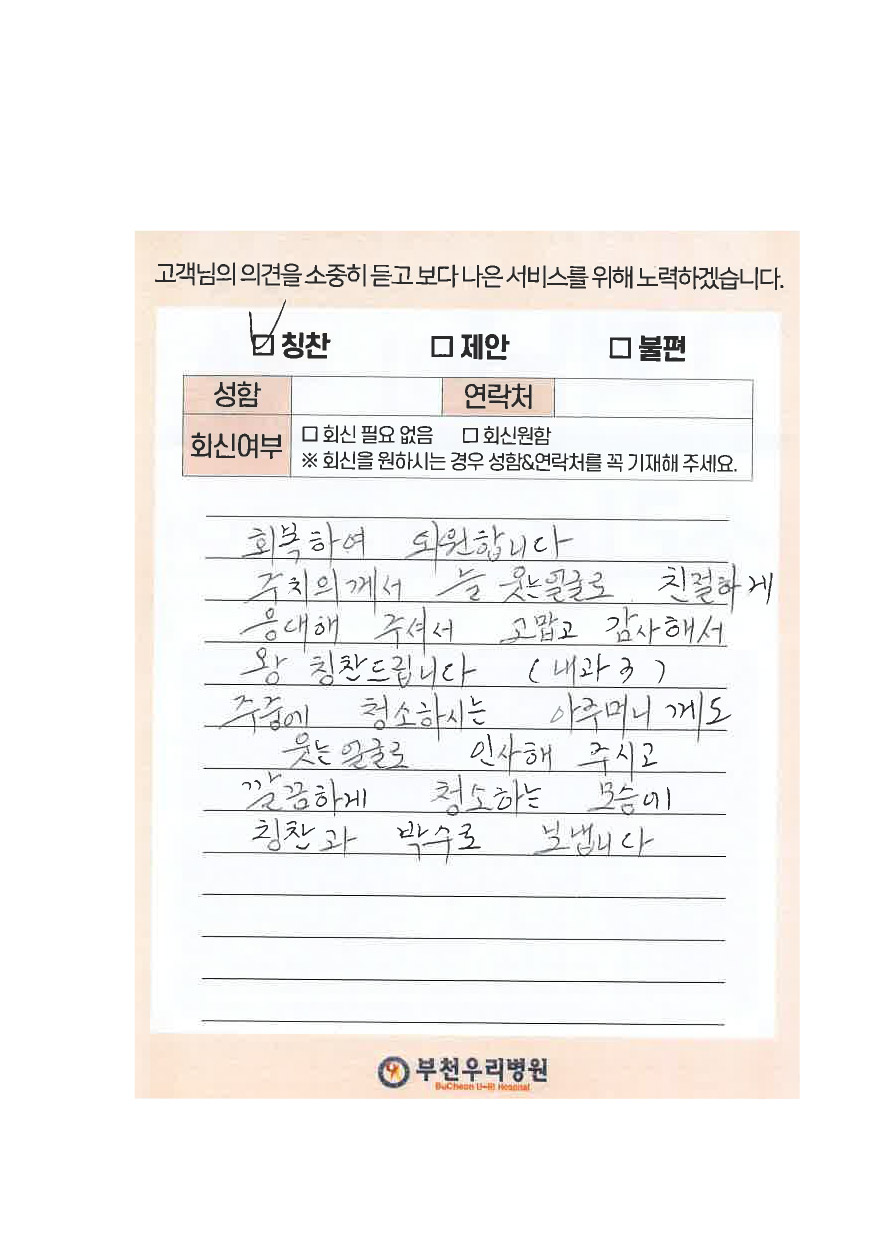 고객님의 의견을 소중히 듣고 보다 나은 서비스를 위해 노력하겠습니다.
☑ 칭찬 □ 제안 □ 불편
성함 연락처
회신여부 □ 회신 필요 없음 □ 회신원함
※ 회신을 원하시는 경우 성함&연락처를 꼭 기재해 주세요.
회복하여 퇴원합니다
주치의께서 늘 웃는얼굴로 친절하게
응대해 주셔서 고맙고 감사해서
왕 칭찬드립니다 (내과3)
주중에 청소하시는 아주머니 께도
웃는 얼굴로 인사해 주시고
깔끔하게 청소하는 모습에
칭찬과 박수로 보냅니다
부천우리병원
BuCheon U-RI Hospital